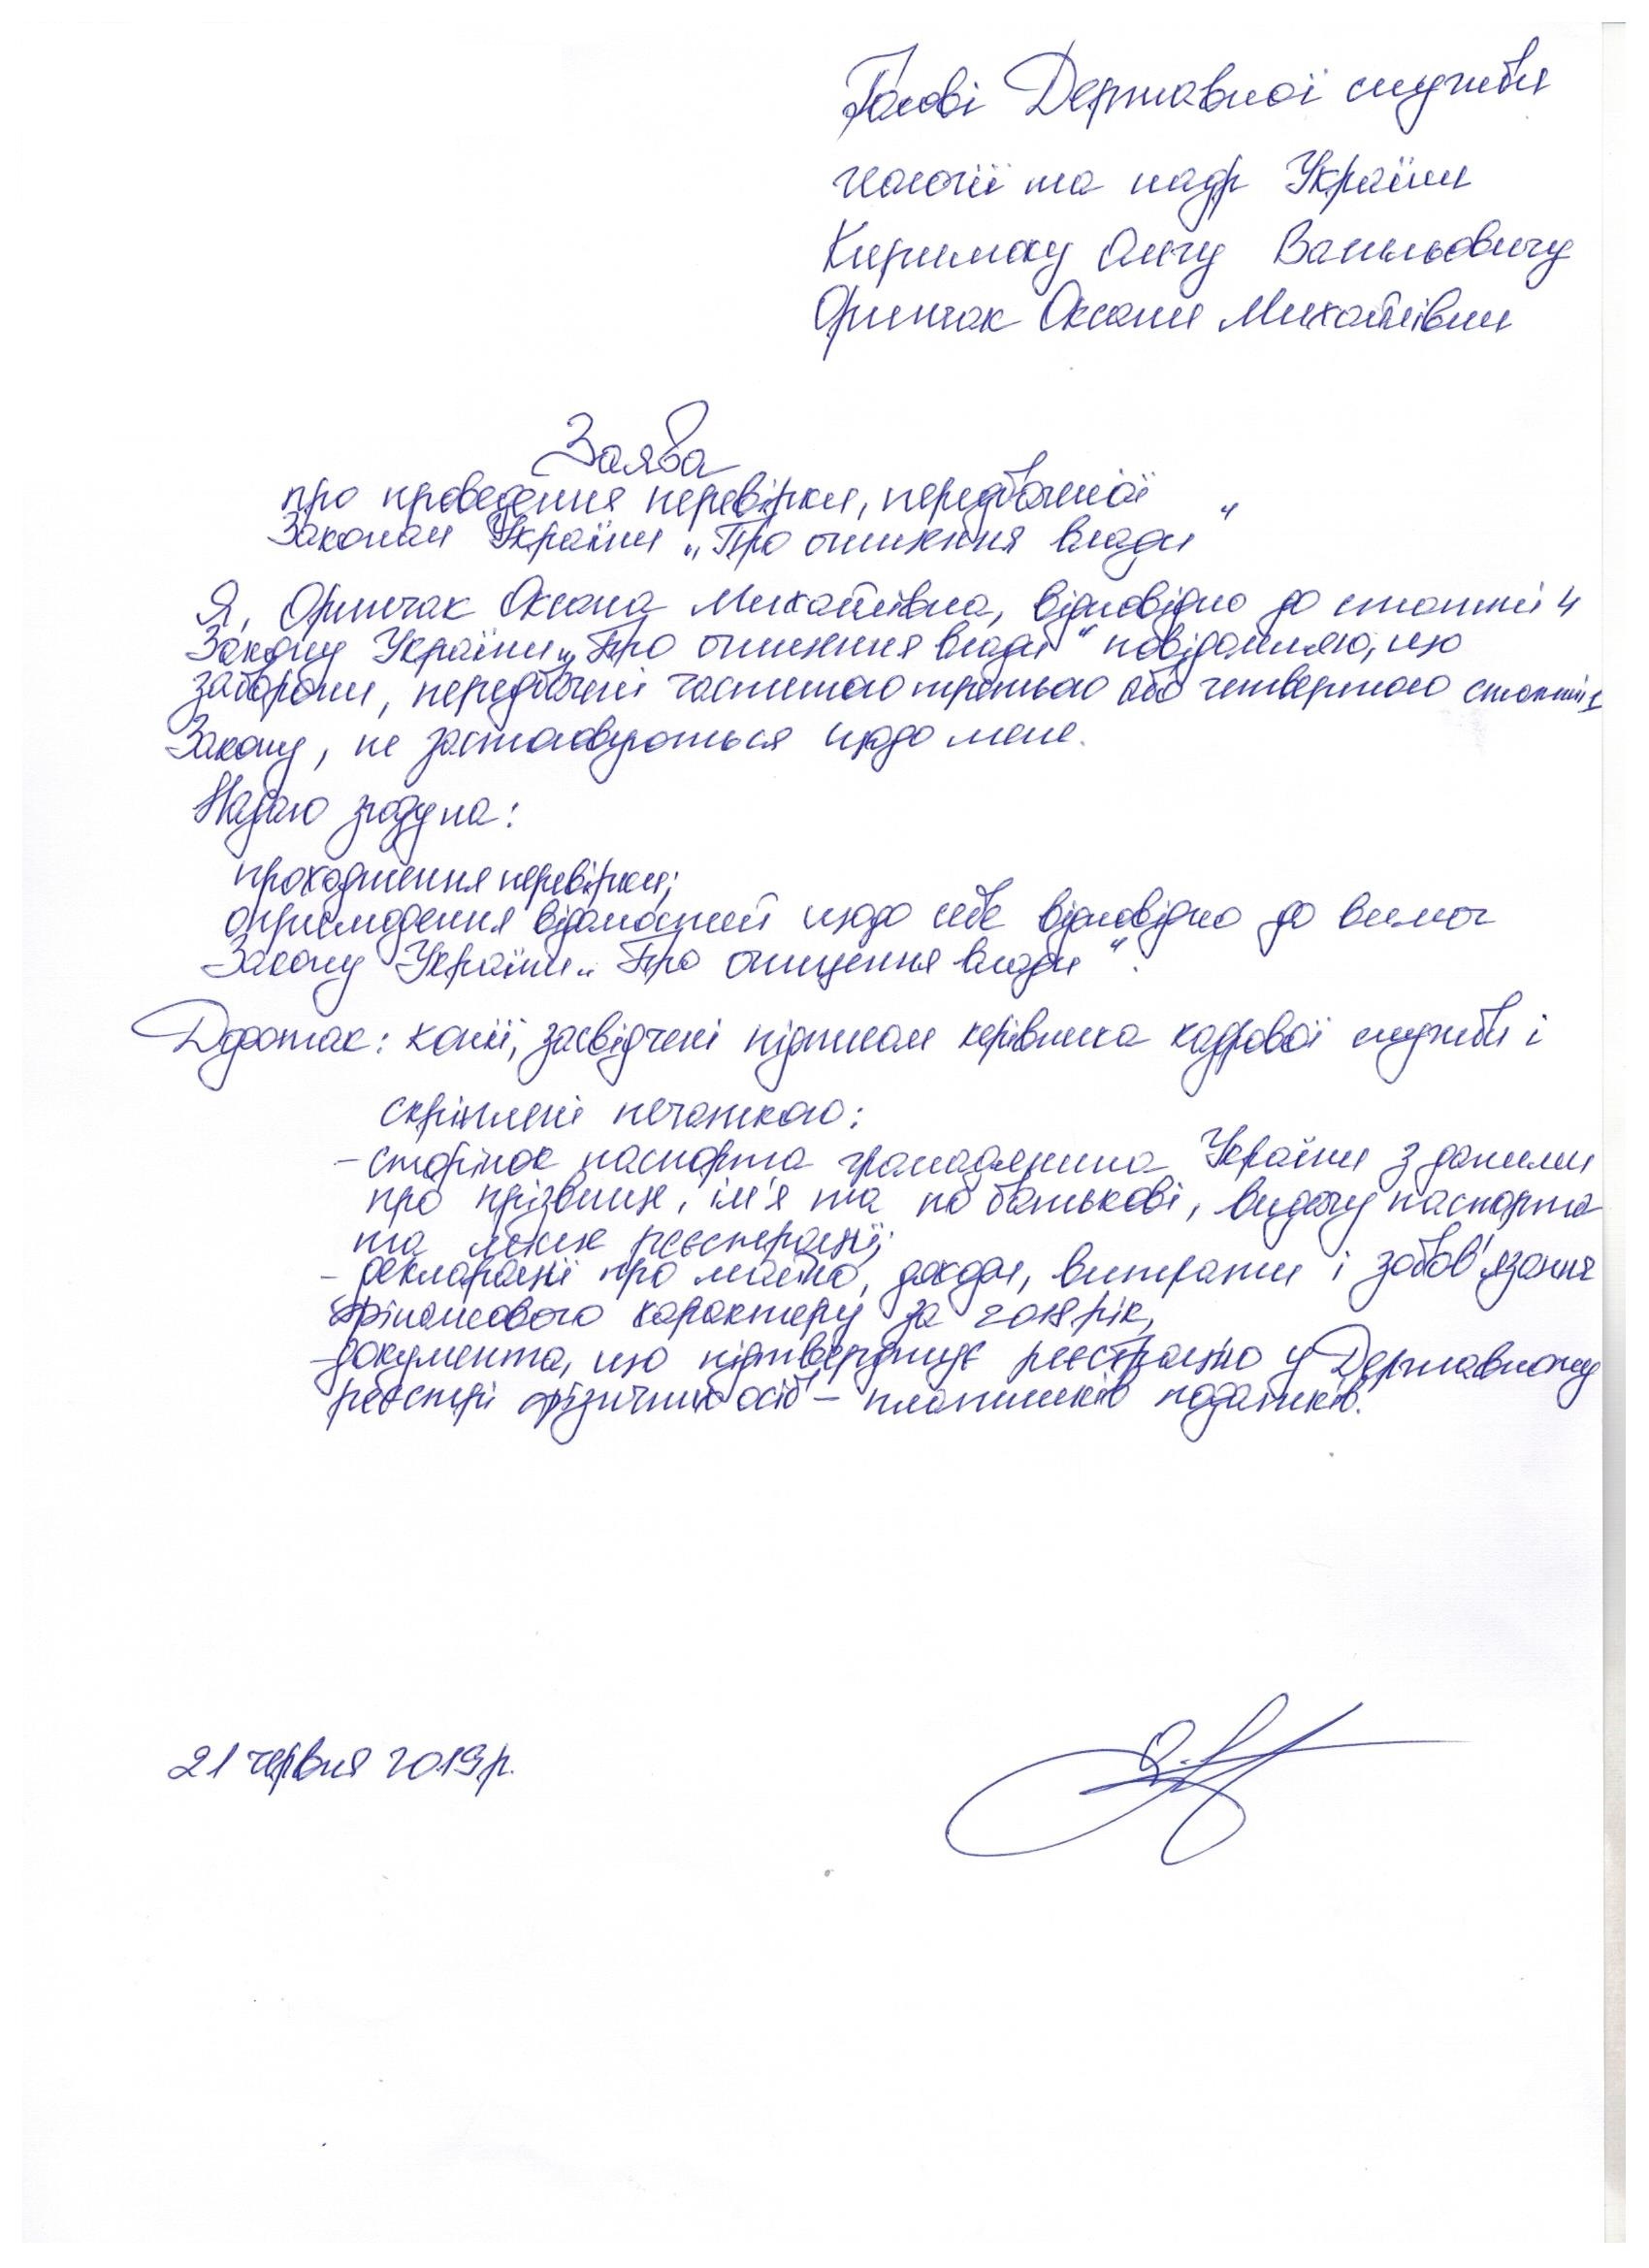 Голові Державної служби
геології та надр України
Кирилюку Олегу Васильовичу
Оринчак Оксани Михайлівни
Заява
про проведення перевірки, передбаченої
Законом України „Про очищення влади“
Я, Оринчак Оксана Михайлівна, відповідно до статті 4
Закону України „Про очищення влади“ повідомляю, що
заборони, передбачені частиною третьою або четвертою статті 1
Закону, не застосовуються щодо мене.
Надаю згоду на:
проходження перевірки;
оприлюднення відомостей щодо себе відповідно до вимог
Закону України „Про очищення влади“.
Додаток: копії, засвідчені підписом керівника кадрової служби і
скріплені печаткою:
- сторінок паспорта громадянина України з даними
про прізвище, ім'я та по батькові, видачу паспорта
та місце реєстрації;
- декларації про майно, доходи, витрати і зобов'язання
фінансового характеру за 2018 рік,
- документа, що підтверджує реєстрацію у Державному
реєстрі фізичних осіб – платників податків.
21 червня 2019 р.